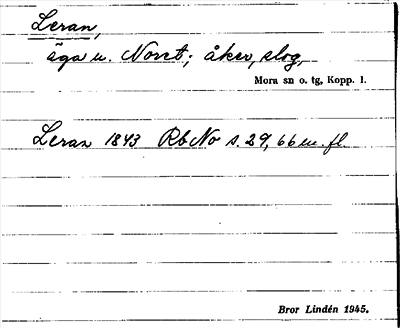 Leran,
äga u. Noret; åker, slog,
Mora sn o. tg, Kopp. l.
Leran 1843 RbNo s. 29, 66 m. fl.
Bror Lindén 1945.